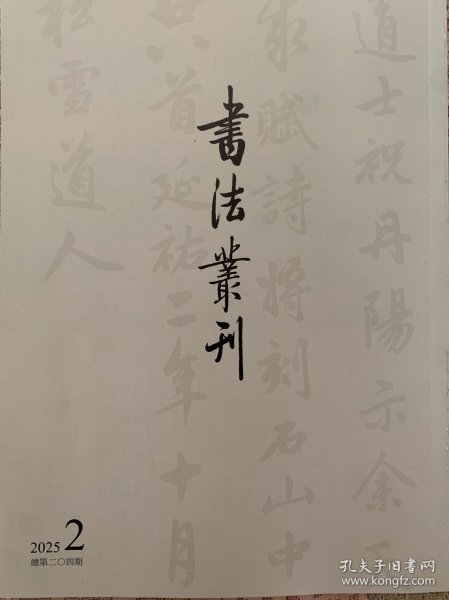 書法叢刊
道士祝丹陽示余
求賦詩將刻石山中
廿八首延祐二年十月
松雪道人
2025 2
總第二〇四期
孔夫子旧书网
www.kongfz.com